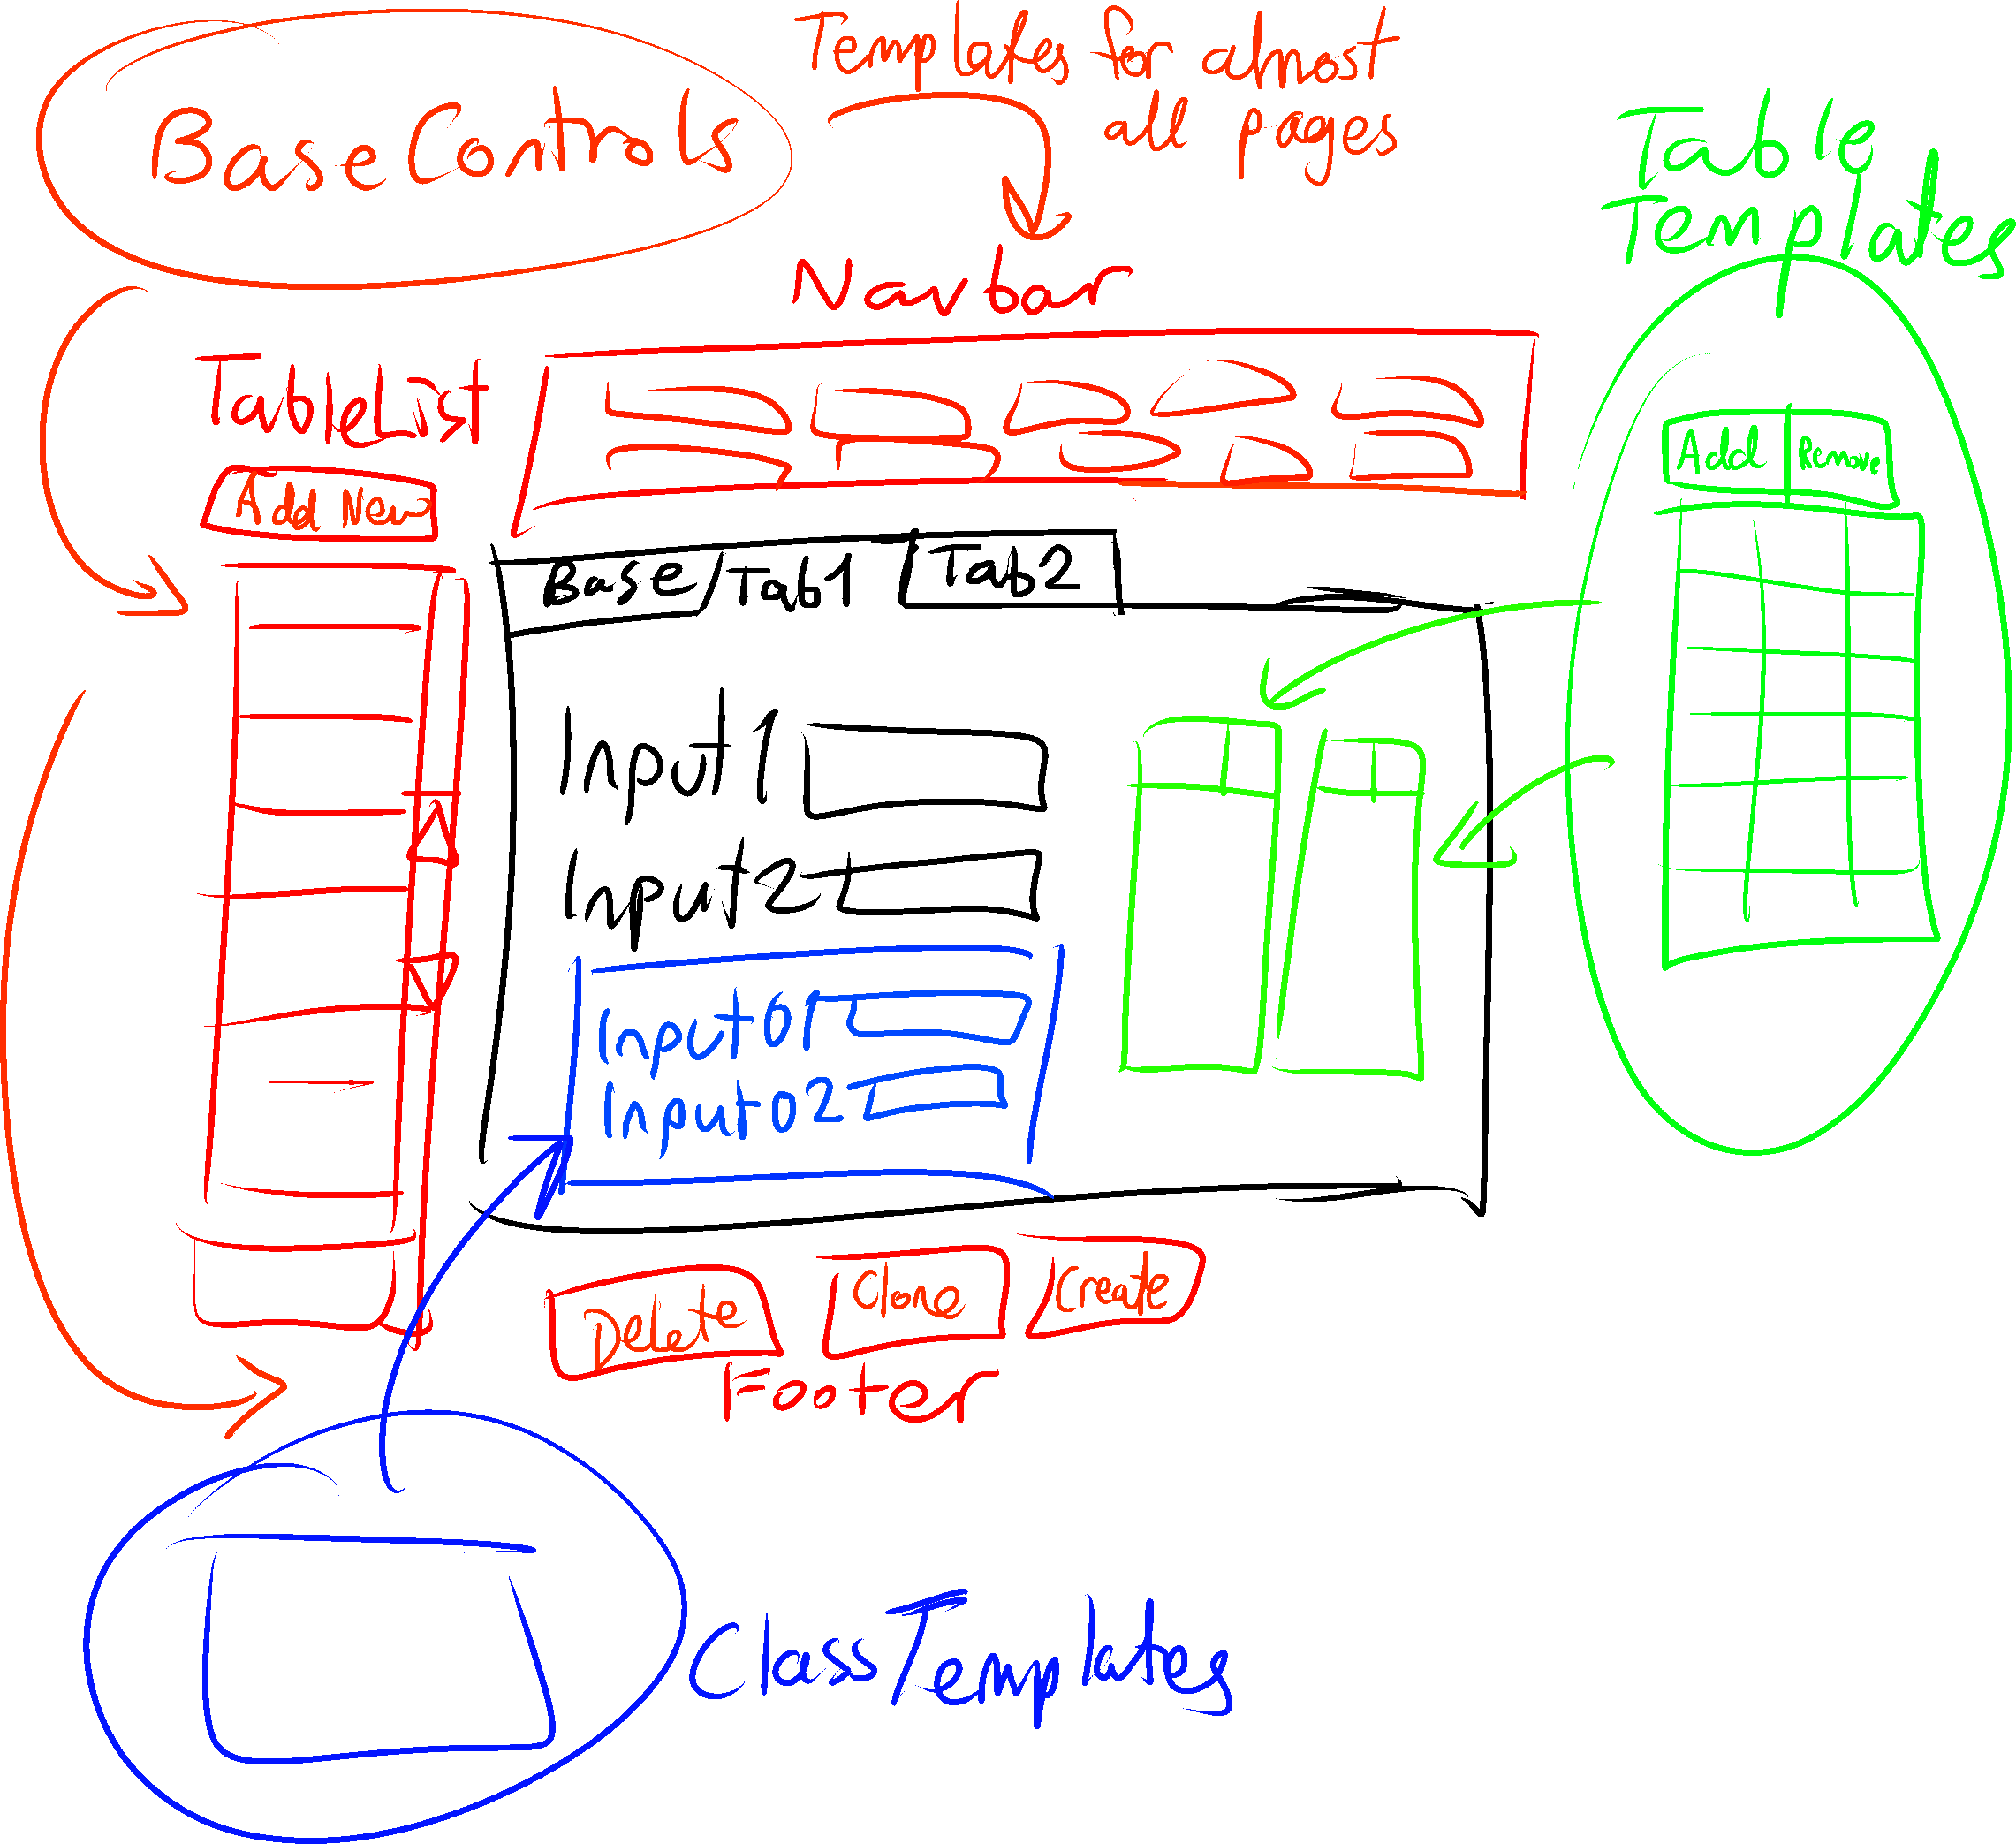 BaseControls
Templates for almost
all pages
Table
Templates
Navbar
TableList
Add New
Add Remove
Base/Tab1 Tab2
Input1
Input2
Input01
Input02
Delete Clone Create
Footer
ClassTemplates